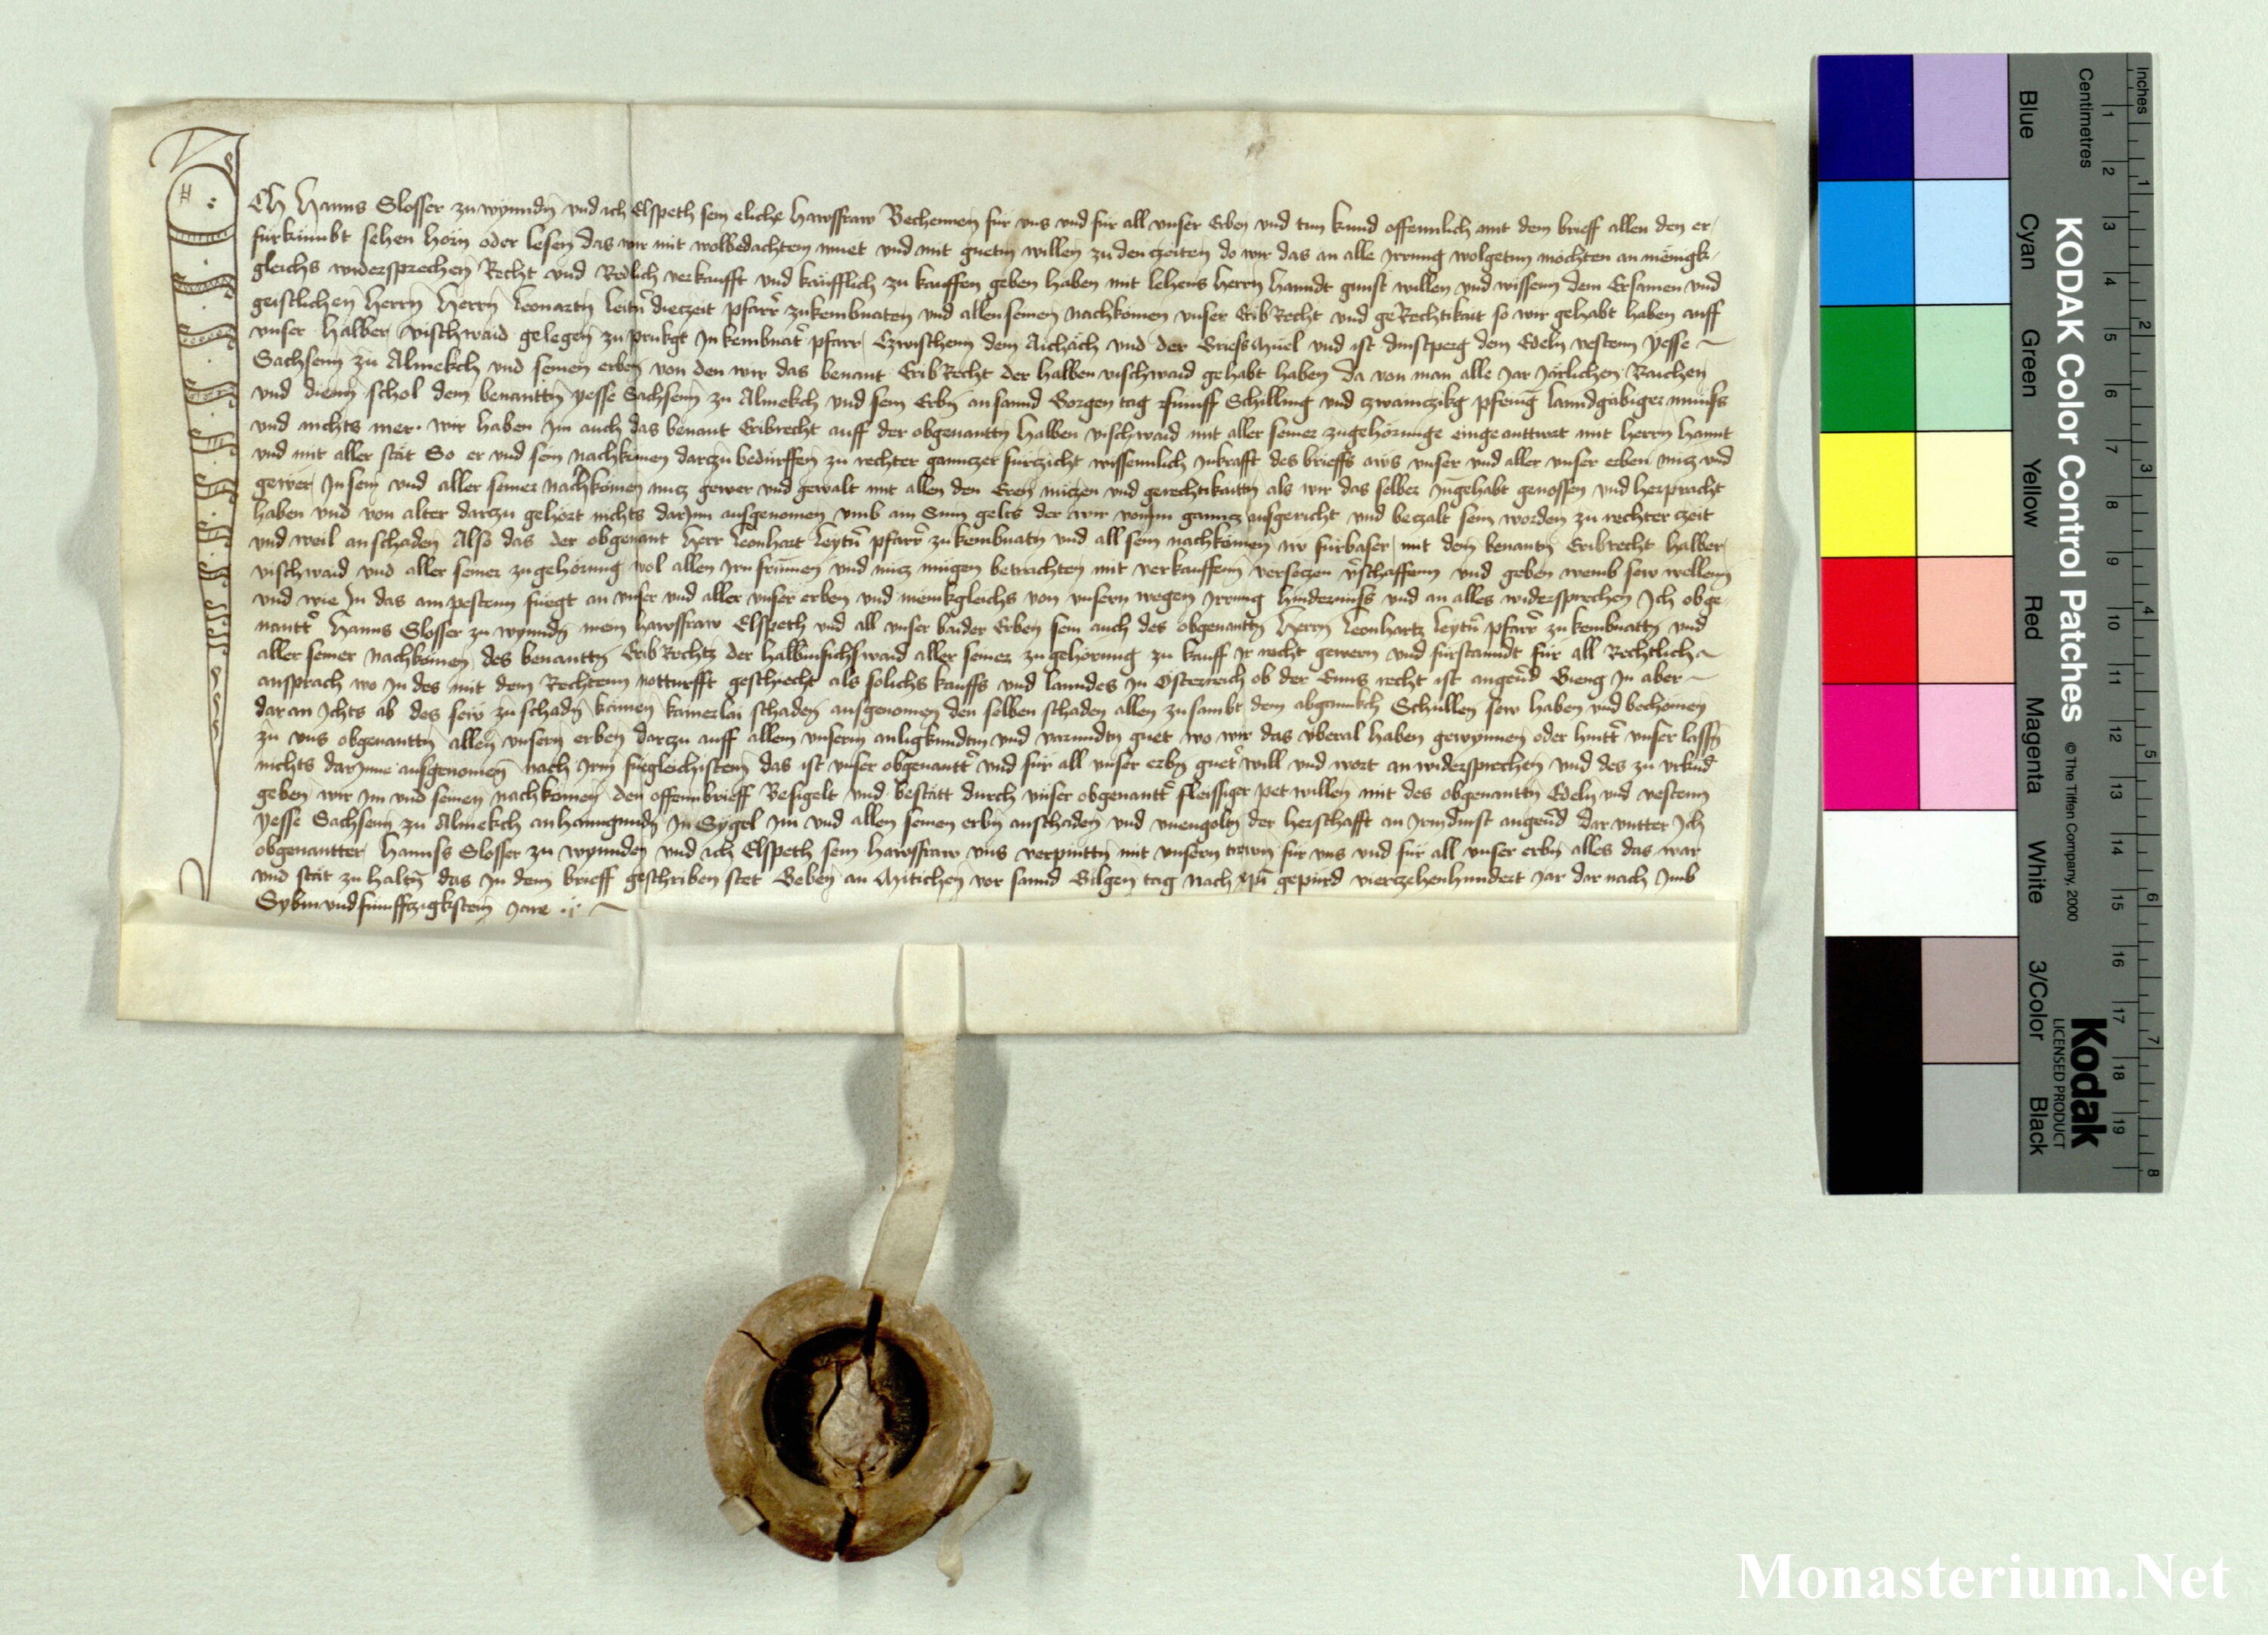 Ich Hanns Slosser zu wynndn̄ vnd ich Elspeth sein eliche Hawsfraw Bechennen für vns vnd für all vnser Erben vnd tun kund offennlich mit dem brieff allen den er
fürkümbt sehen hörn̄ oder lesen das wir mit wolbedachtem muet vnd mit guetm̄ willen zu den czeiten do wir das an alle Irrung wolgetun mochten an mënigk
gleichs widersprechen Recht vnd Redlich verkaufft vnd käufflich zu kauffen geben haben mit lehens herrn hanndt gunst willen vnd wissenn dem Ersamen vnd
geistlichen herrn herrn Leonartn̄ Leitn̄ dieczeit pfarr̄ zu kembnaten vnd allen seinen nachkömen vnser Erib Recht vnd geRechtikait so wir gehabt haben auff
vnser halben vischwaid gelegen zu prukgt In kembnat̄ pfarr Czwischenn dem Aichäch vnd der Griessmüel vnd ist dinstperg dem Edeln vestenn yesse
Sachsenn zu Almekch vnd seinen erben von den wir das benant Erib Recht der halben vischwaid gehabt haben Da von man alle Jar Järlichen Raichen
vnd dienn̄ schol dem benanttn̄ yesse Sachsenn zu Almekch vnd sein Erbn̄ an sannd Gorgen tag fünff Schilling vnd czwainczikg pfenīg lanndgäbiger münss
vnd nichts mer. wir haben Im auch das benant Eribrecht auff der obgenanttn̄ halben vischwaid mit aller seiner zugehörunge eingeanttwrt mit herrn hannt
vnd mit aller stät So er vnd sein nachkömen darczu bedürffen zu rechter gannczer fürczicht wissennlich Inkrafft des brieffs aws vnser vnd aller vnser erben nucz vnd
gewer In sein vnd aller seiner nachkömen nucz gewer vnd gewalt mit allen den Eren nüczen vnd gerechtikaittn̄ als wir das selber Inngehabt genossen vnd herpracht
haben vnd von alter darczu gehört nichts darInn ausgenomen vmb ain Sum gelts der wir von Im gancz ausgericht vnd beczalt sein worden zu rechter czeit
vnd weil an schaden Also das der obgenant herr Leonhart Leytn̄ pfarr̄ zu kembnatn̄ vnd all sein nachkömen nw fürbaser mit dem benantn̄ Eribrecht halber
vischwaid vnd aller seiner zugehörung wol allen Irn frümen vnd nucz mügen betrachten mit verkauffenn verseczen v̄schaffenn vnd geben wemb sew wellenn
vnd wie In das am pestenn füegt an vnser vnd aller vnser erben vnd menikgleichs von vnsern wegen Irrung hindernüss vnd an alles widersprechen Ich obge
nantt̄ Hanns Slosser zu wynndn̄ mein hawsfraw Elspeth vnd all vnser baider Erben sein auch des obgenanttn̄ herrn Leonhartz Leytn̄ pfarr̄ zu kembnattn̄ vnd
aller seiner nachkömen des benanttn̄ Erib Rechtz der halbm̄ fischswaid aller seiner zugehörung zu kauff Ir recht gewern vnd fürstanndt für all Rechtlich
ansprach wo In des mit dem Rechtenn notturfft geschiecht als solichs kauffs vnd lanndes In Österreich ob der Enns recht ist angeu̅d Gieng In aber
dar an Ichts ab des sew zu schadn̄ kömen kainerlai schaden ausgenomen den selben schaden allen zu sambt dem abganngkch Schullen sew haben vnd bechömen
zu vns obgenanttn̄ allen vnsern erben darczu auff allem vnserm anligkundtn̄ vnd varundtn̄ guet wo wir das vberal haben gewynnen oder hintt̄ vnser lassn̄
nichts darInne ausgenomen nach Irm fürgleichistenn das ist vnser obgenantt̄ vnd für all vnser erbn̄ guet̄ will vnd wort an widersprechen vnd des zu vrkūd
geben wir Im vnd seinen nachkömen den offennbrieff Besigelt vnd bestätt durch vnser obgenantt̄ fleissiger pet willen mit des obgenanttn̄ Edeln vnd vestenn
yesse Sachsenn zu Almekch anhanngundn̄ In Sygel Im vnd allen seinen erbn̄ anschaden vnd vnengoltn̄ der herschafft an Irm dinst angeu̅d dar vntter Ich
obgenantter hannss Slosser zu wynnden vnd ich Elspeth sein hawsfraw vns verpinttn̄ mit vnsern trewn̄ für vns vnd für all vnser erbn̄ alles das war
vnd stät zu haltn̄ das In dem brieff geschriben stet Geben an Mitichen vor sannd Gilgen tag nach xpī gepürd vierczehenhundert Jar dar nach Imb
Sybm̄ vnd fünffczigkstenn Jare
Inches
Centimetres
1 2 3 4 5 6 7 8
1 2 3 4 5 6 7 8 9 10 11 12 13 14 15 16 17 18 19
KODAK Color Control Patches
© The Tiffen Company, 2000
Kodak
LICENSED PRODUCT
Blue Cyan Green Yellow Red Magenta White 3/Color Black
Monasterium.Net